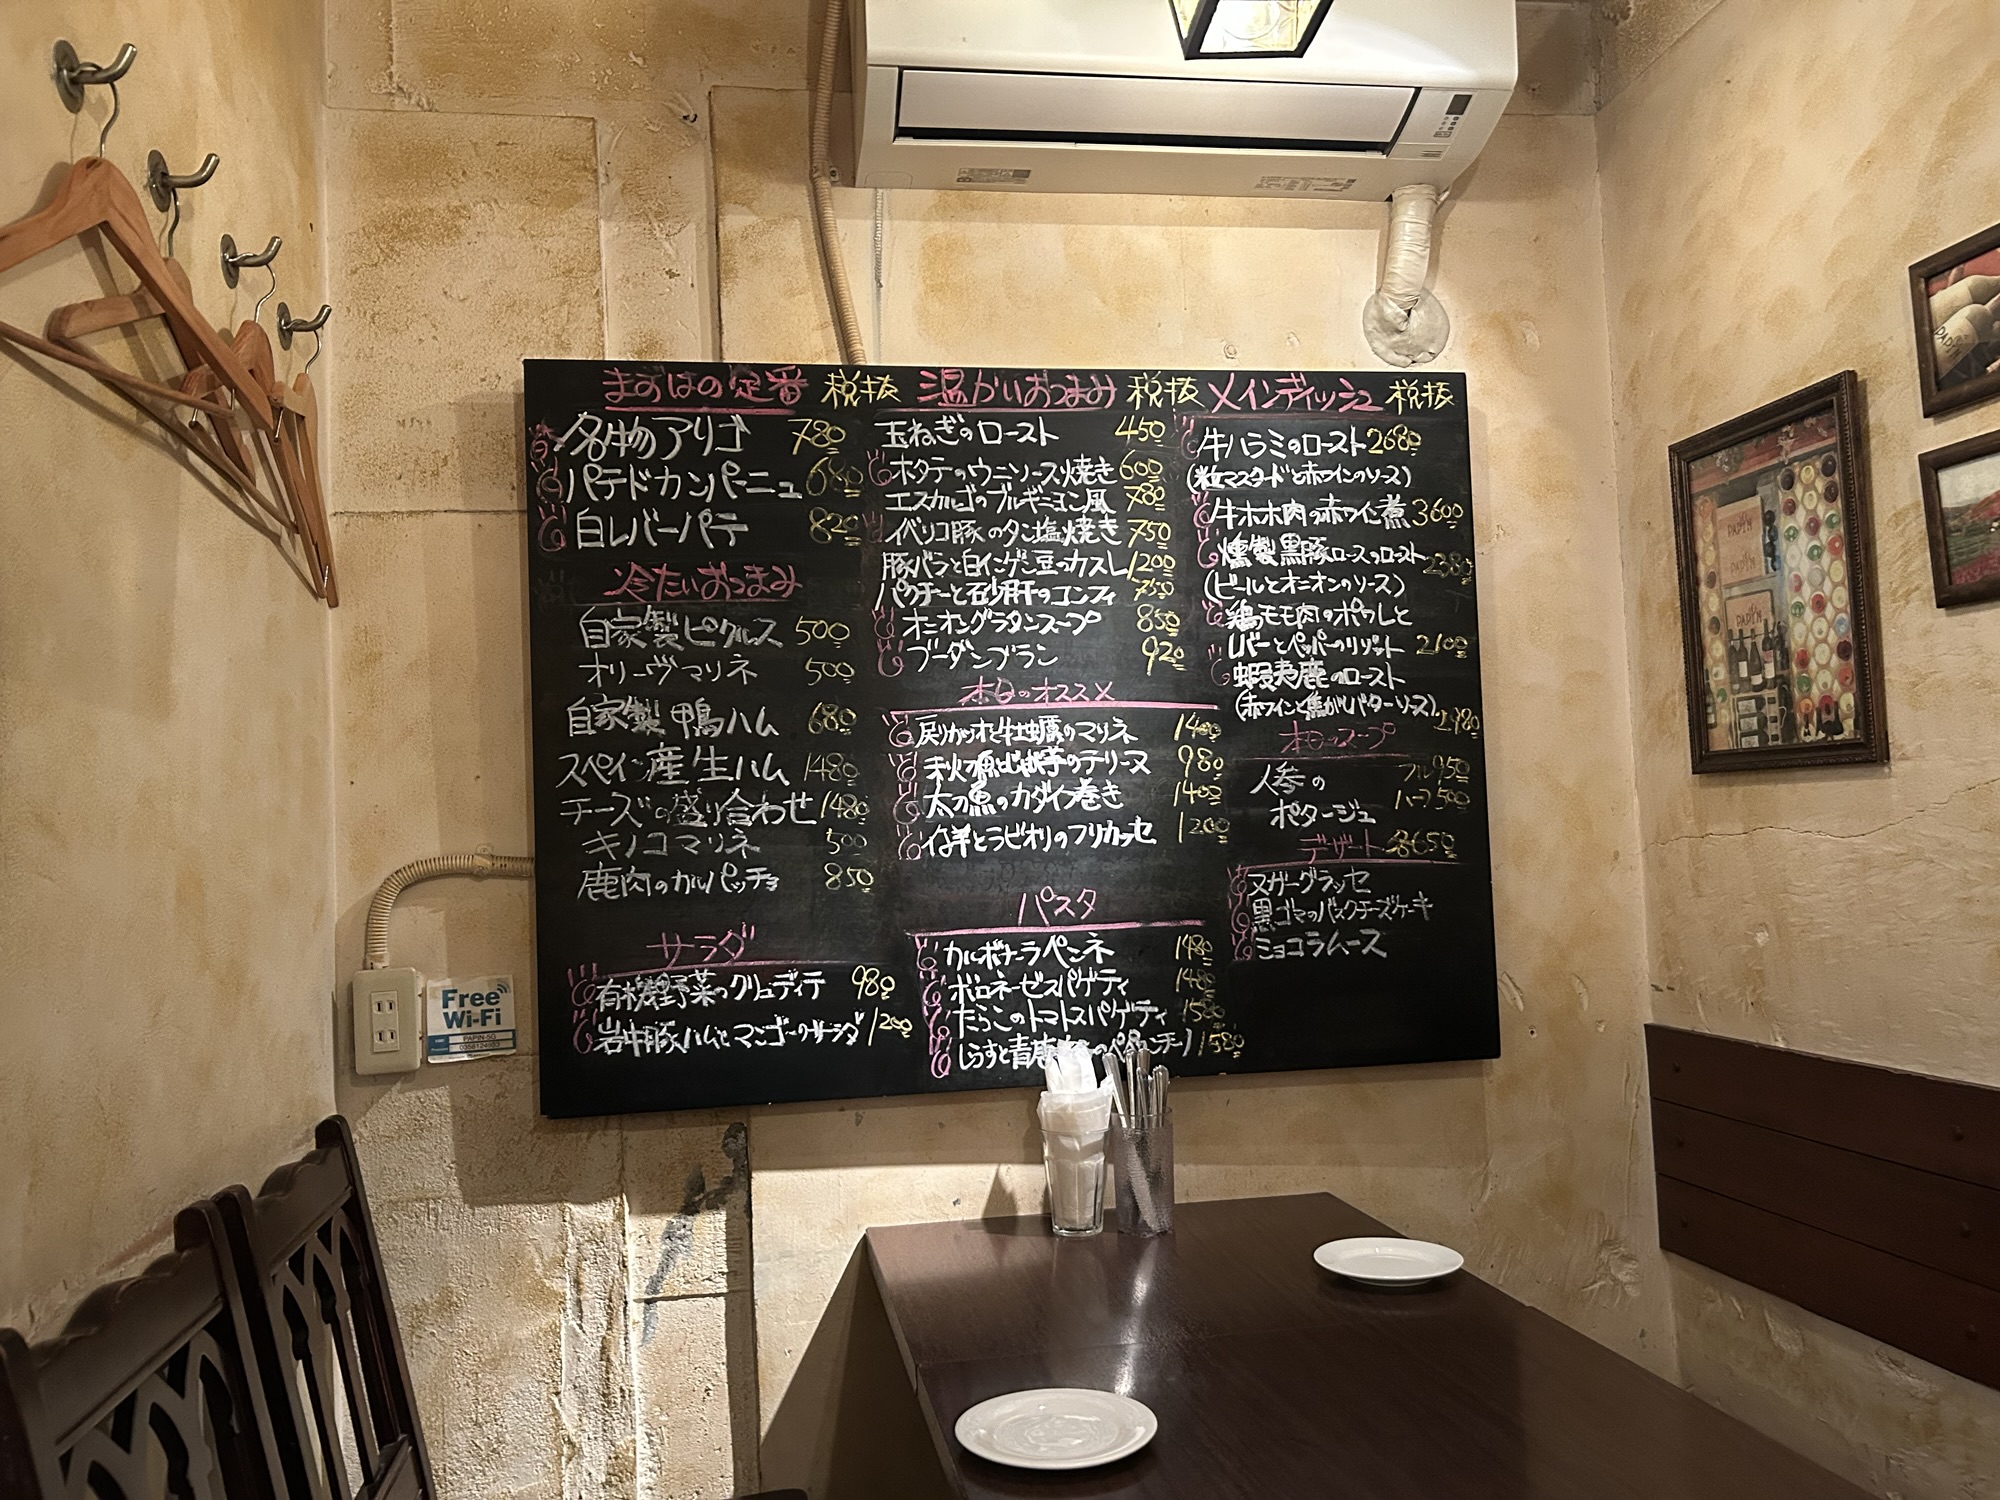 まずはの定番 税抜
名物アリゴ 780
パテドカンパーニュ 680
白レバーパテ 820
冷たいおつまみ
自家製ピクルス 500
オリーヴマリネ 500
自家製鴨ハム 680
スペイン産生ハム 1480
チーズの盛り合わせ 1480
キノコマリネ 500
鹿肉のカルパッチョ 850
サラダ
有機野菜のクリュディテ 980
岩中豚ハムとマンゴーのサラダ 1200
温かいおつまみ 税抜
玉ねぎのロースト 450
ホタテのウニソース焼き 600
エスカルゴのブルギニヨン風 780
イベリコ豚のタン塩焼き 750
豚バラと白インゲン豆のカスレ 1200
パクチーと砂肝のコンフィ 750
オニオングラタンスープ 850
ブーダンブラン 920
本日のオススメ
戻りカツオと牡蠣のマリネ 1400
秋刀魚とじゃが芋のテリーヌ 980
太刀魚のカダイフ巻き 1400
仔羊とラビオリのフリカッセ 1200
パスタ
カルボナーラペンネ 1480
ボロネーゼスパゲティ 1480
たらこのトマトスパゲティ 1580
しらすと青唐 のペペロンチーノ 1580
メインディッシュ 税抜
牛ハラミのロースト 2680
(粒マスタードと赤ワインのソース)
牛ホホ肉の赤ワイン煮 3600
燻製黒豚ロースのロースト 2380
(ビールとオニオンのソース)
鶏モモ肉のポワレと
レバーとペッパーのリゾット 2100
蝦夷鹿のロースト
(赤ワインと焦がしバターソース) 2980
本日のスープ
人参の フル950
ポタージュ ハーフ500
デザート 各650
ヌガーグラッセ
黒ゴマのバスクチーズケーキ
ショコラムース
Free
Wi-Fi
PAPIN-5G
PAPIN
PAPIN
PAPIN